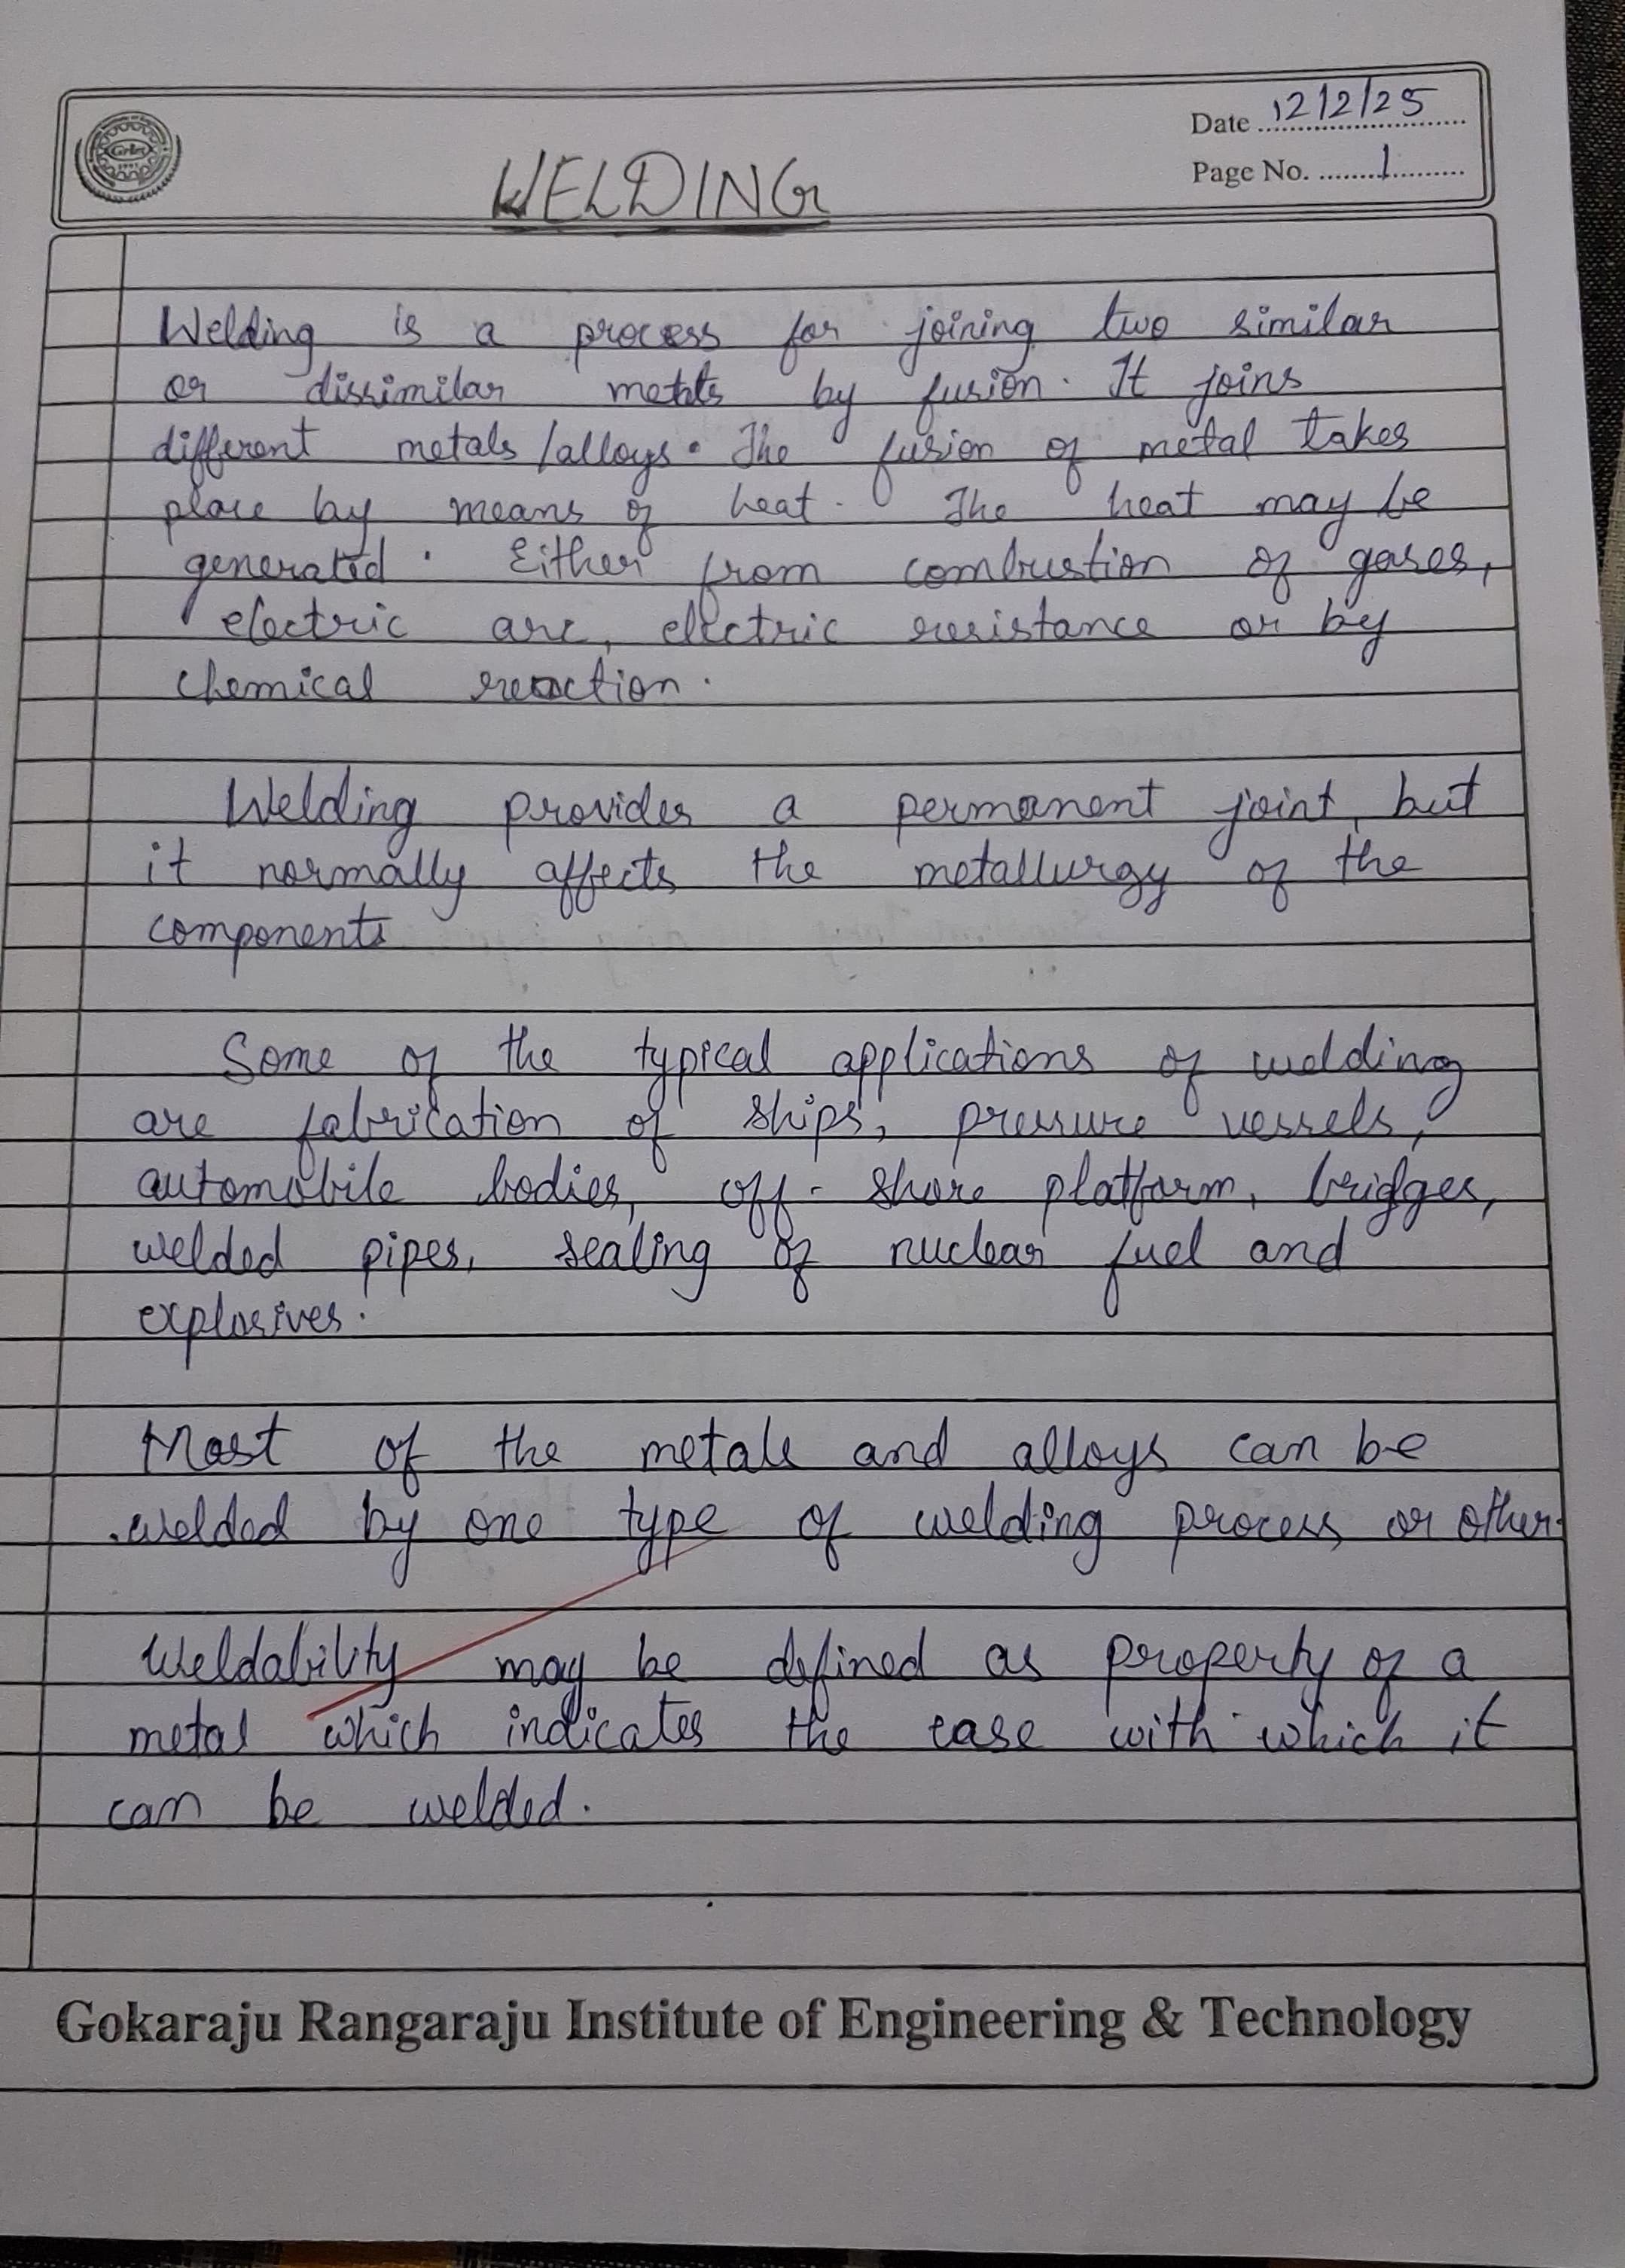 Date 12/2/25
Page No. 1
WELDING
Welding is a process for joining two similar
or dissimilar metals by fusion. It joins
different metals /alloys. The fusion of metal takes
place by means of heat. The heat may be
generated. Either from combustion of gases,
electric arc, electric resistance or by
chemical reaction.
Welding provides a permanent joint, but
it normally affects the metallurgy of the
components
Some of the typical applications of welding
are fabrication of ships, pressure vessels,
automobile bodies, off-shore platform, bridges,
welded pipes, sealing of nuclear fuel and
explosives.
Most of the metals and alloys can be
welded by one type of welding process or other.
Weldability may be defined as property of a
metal which indicates the ease with which it
can be welded.
Gokaraju Rangaraju Institute of Engineering & Technology